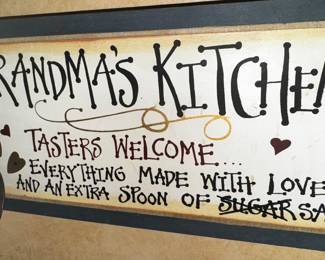 RANDMA'S KITCHEN
TASTERS WELCOME...
EVERYTHING MADE WITH LOVE
AND AN EXTRA SPOON OF SUGAR SA